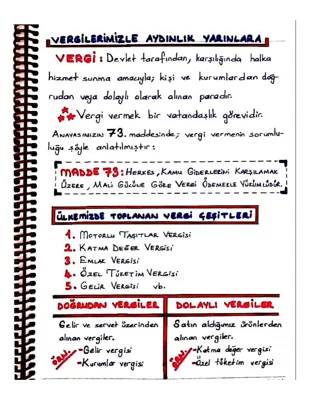 VERGİLERİMİZLE AYDINLIK YARINLARA
VERGİ: Devlet tarafından, karşılığında halka
hizmet sunma amacıyla; kişi ve kurumlardan doğ-
rudan veya dolaylı olarak alınan paradır.
Vergi vermek bir vatandaşlık görevidir.
ANAYASIMIZIN 73. maddesinde; vergi vermenin sorumlu-
luğu şöyle anlatılmıştır:
MADDE 73: HERKES, KAMU GİDERLERİNİ KARŞILAMAK
ÜZERE, MALİ GÜCÜNE GÖRE VERGİ ÖDEMEKLE YÜKÜMLÜDÜR.
ÜLKEMİZDE TOPLANAN VERGİ ÇEŞİTLERİ
1. MOTORLU TAŞITLAR VERGİSİ
2. KATMA DEĞER VERGİSİ
3. EMLAK VERGİSİ
4. ÖZEL TÜKETİM VERGİSİ
5. GELİR VERGİSİ vb.
DOĞRUDAN VERGİLER
Gelir ve servet üzerinden
alınan vergiler.
ÖRN: -Gelir vergisi
-Kurumlar vergisi
DOLAYLI VERGİLER
Satın aldığımız ürünlerden
alınan vergiler.
ÖRN: -Katma değer vergisi
-Özel tüketim vergisi